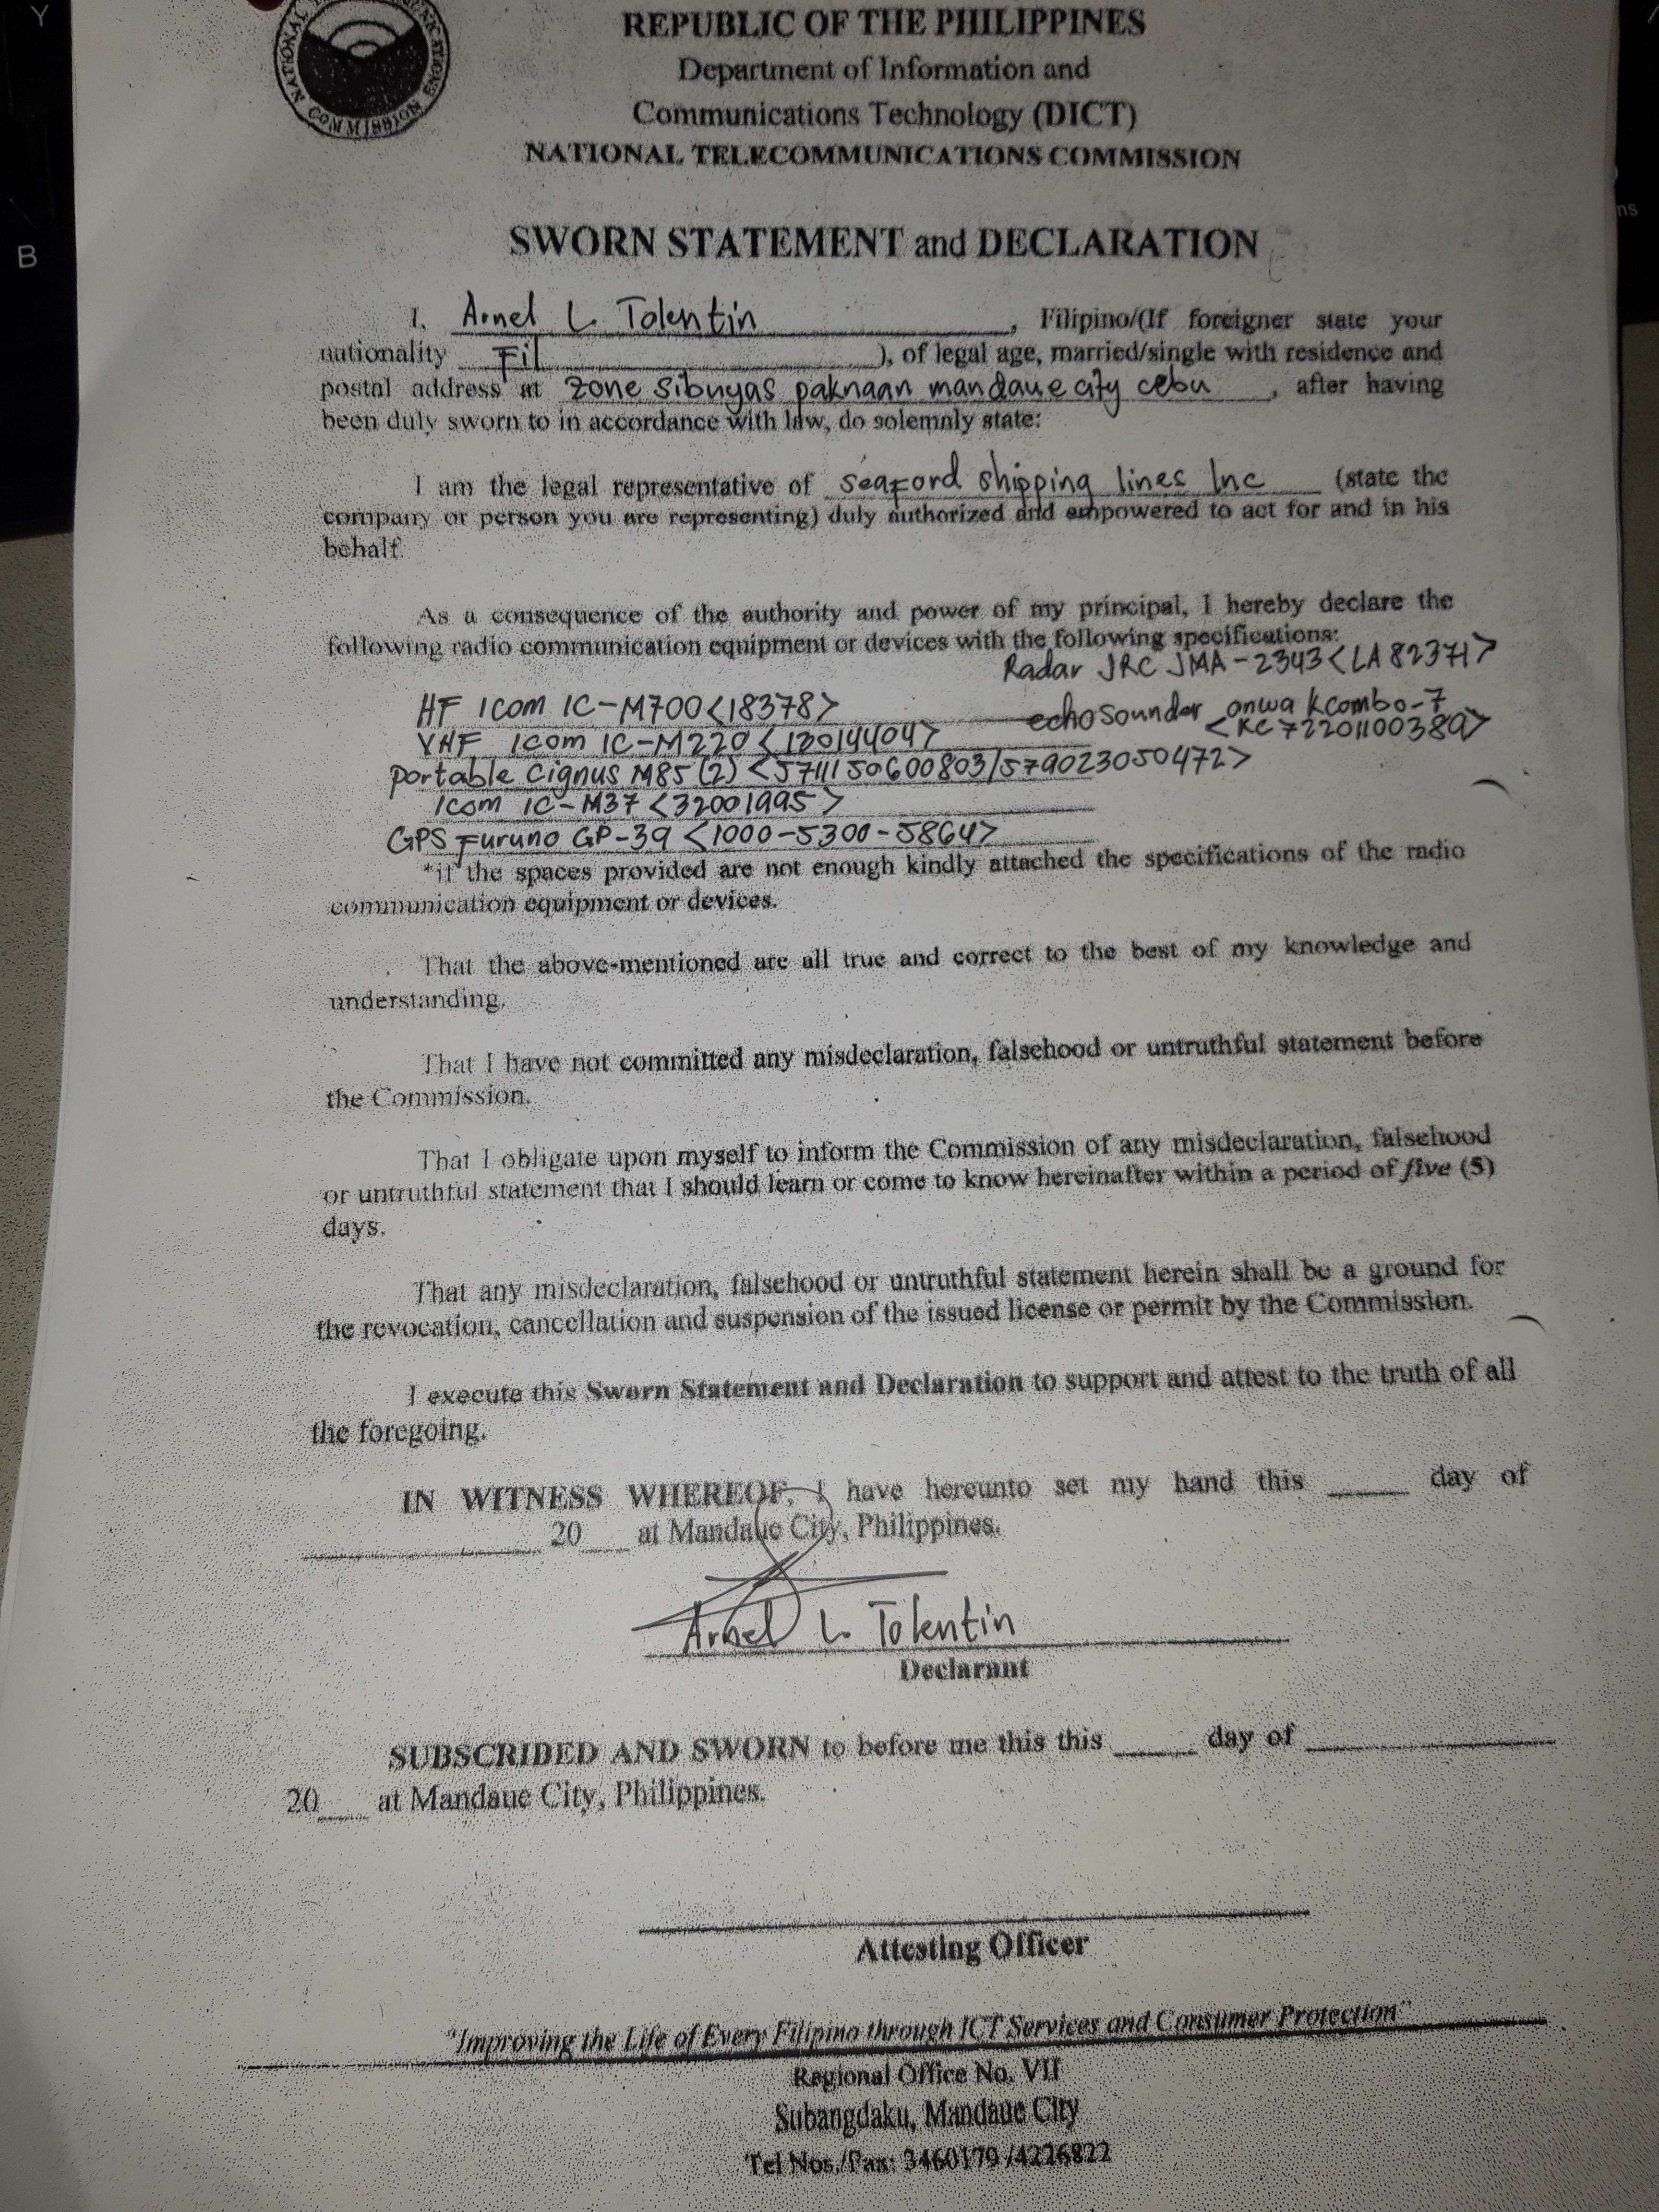 Y
B
ns
NATIONAL
COMMISSION
REPUBLIC OF THE PHILIPPINES
Department of Information and
Communications Technology (DICT)
NATIONAL TELECOMMUNICATIONS COMMISSION
SWORN STATEMENT and DECLARATION
I, Arnel L. Tolentin, Filipino/(If foreigner state your
nationality Fil), of legal age, married/single with residence and
postal address at zone Sibuyas paknaan mandaue city cebu, after having
been duly sworn to in accordance with law, do solemnly state:
I am the legal representative of seaford shipping lines Inc (state the
company or person you are representing) duly authorized and empowered to act for and in his
behalf.
As a consequence of the authority and power of my principal, I hereby declare the
following radio communication equipment or devices with the following specifications:
Radar JRC JMA-2343<LA82371>
HF Icom IC-M700<18378> echo Sounder onwa Kcombo-7
VHF Icom IC-M220<120144047 <KC72201100389>
portable Cignus M85 (2) <5711150600803/579023050472>
Icom IC-M37 <32001995>
GPS Furuno GP-39 <1000-5300-5864>
*if the spaces provided are not enough kindly attached the specifications of the radio
communication equipment or devices.
That the above-mentioned are all true and correct to the best of my knowledge and
understanding.
That I have not committed any misdeclaration, falsehood or untruthful statement before
the Commission.
That I obligate upon myself to inform the Commission of any misdeclaration, falsehood
or untruthful statement that I should learn or come to know hereinafter within a period of five (5)
days.
That any misdeclaration, falsehood or untruthful statement herein shall be a ground for
the revocation, cancellation and suspension of the issued license or permit by the Commission.
I execute this Sworn Statement and Declaration to support and attest to the truth of all
the foregoing.
IN WITNESS WHEREOF, I have hereunto set my hand this ____ day of
____ 20__ at Mandaue City, Philippines.
Arnel L. Tolentin
Declarant
SUBSCRIDED AND SWORN to before me this this ____ day of ____
20__ at Mandaue City, Philippines.
Attesting Officer
"Improving the Life of Every Filipino through ICT Services and Consumer Protection"
Regional Office No. VII
Subangdaku, Mandaue City
Tel Nos./Fax: 3460179 /4226822